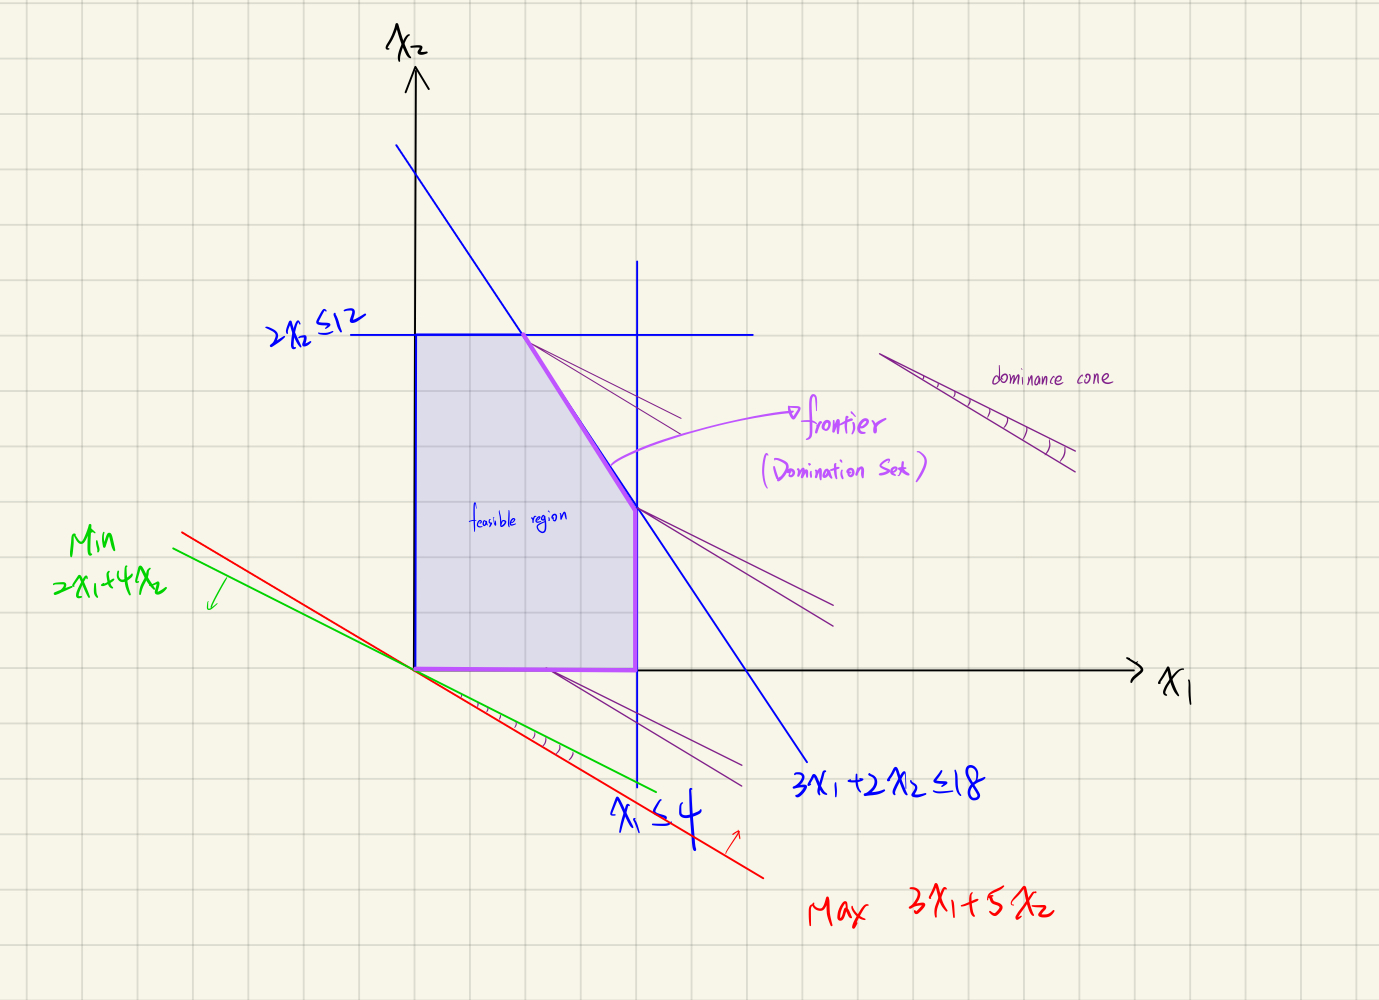 x₂
2x₂ ≤ 12
dominance cone
frontier
(Domination Set)
feasible region
Min
2x₁+4x₂
x₁
3x₁+2x₂ ≤ 18
x₁ ≤ 4
Max 3x₁+5x₂